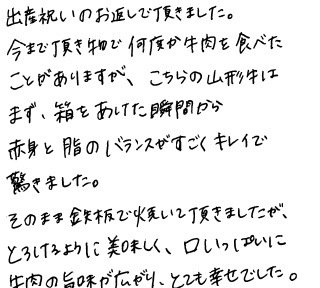 出産祝いのお返しで頂きました。
今まで頂き物で何度か牛肉を食べた
ことがありますが、こちらの山形牛は
まず、箱をあけた瞬間から
赤身と脂のバランスがすごくキレイで
驚きました。
そのまま鉄板で焼いて頂きましたが、
とろけるように美味しく、口いっぱいに
牛肉の旨味が広がり、とても幸せでした。